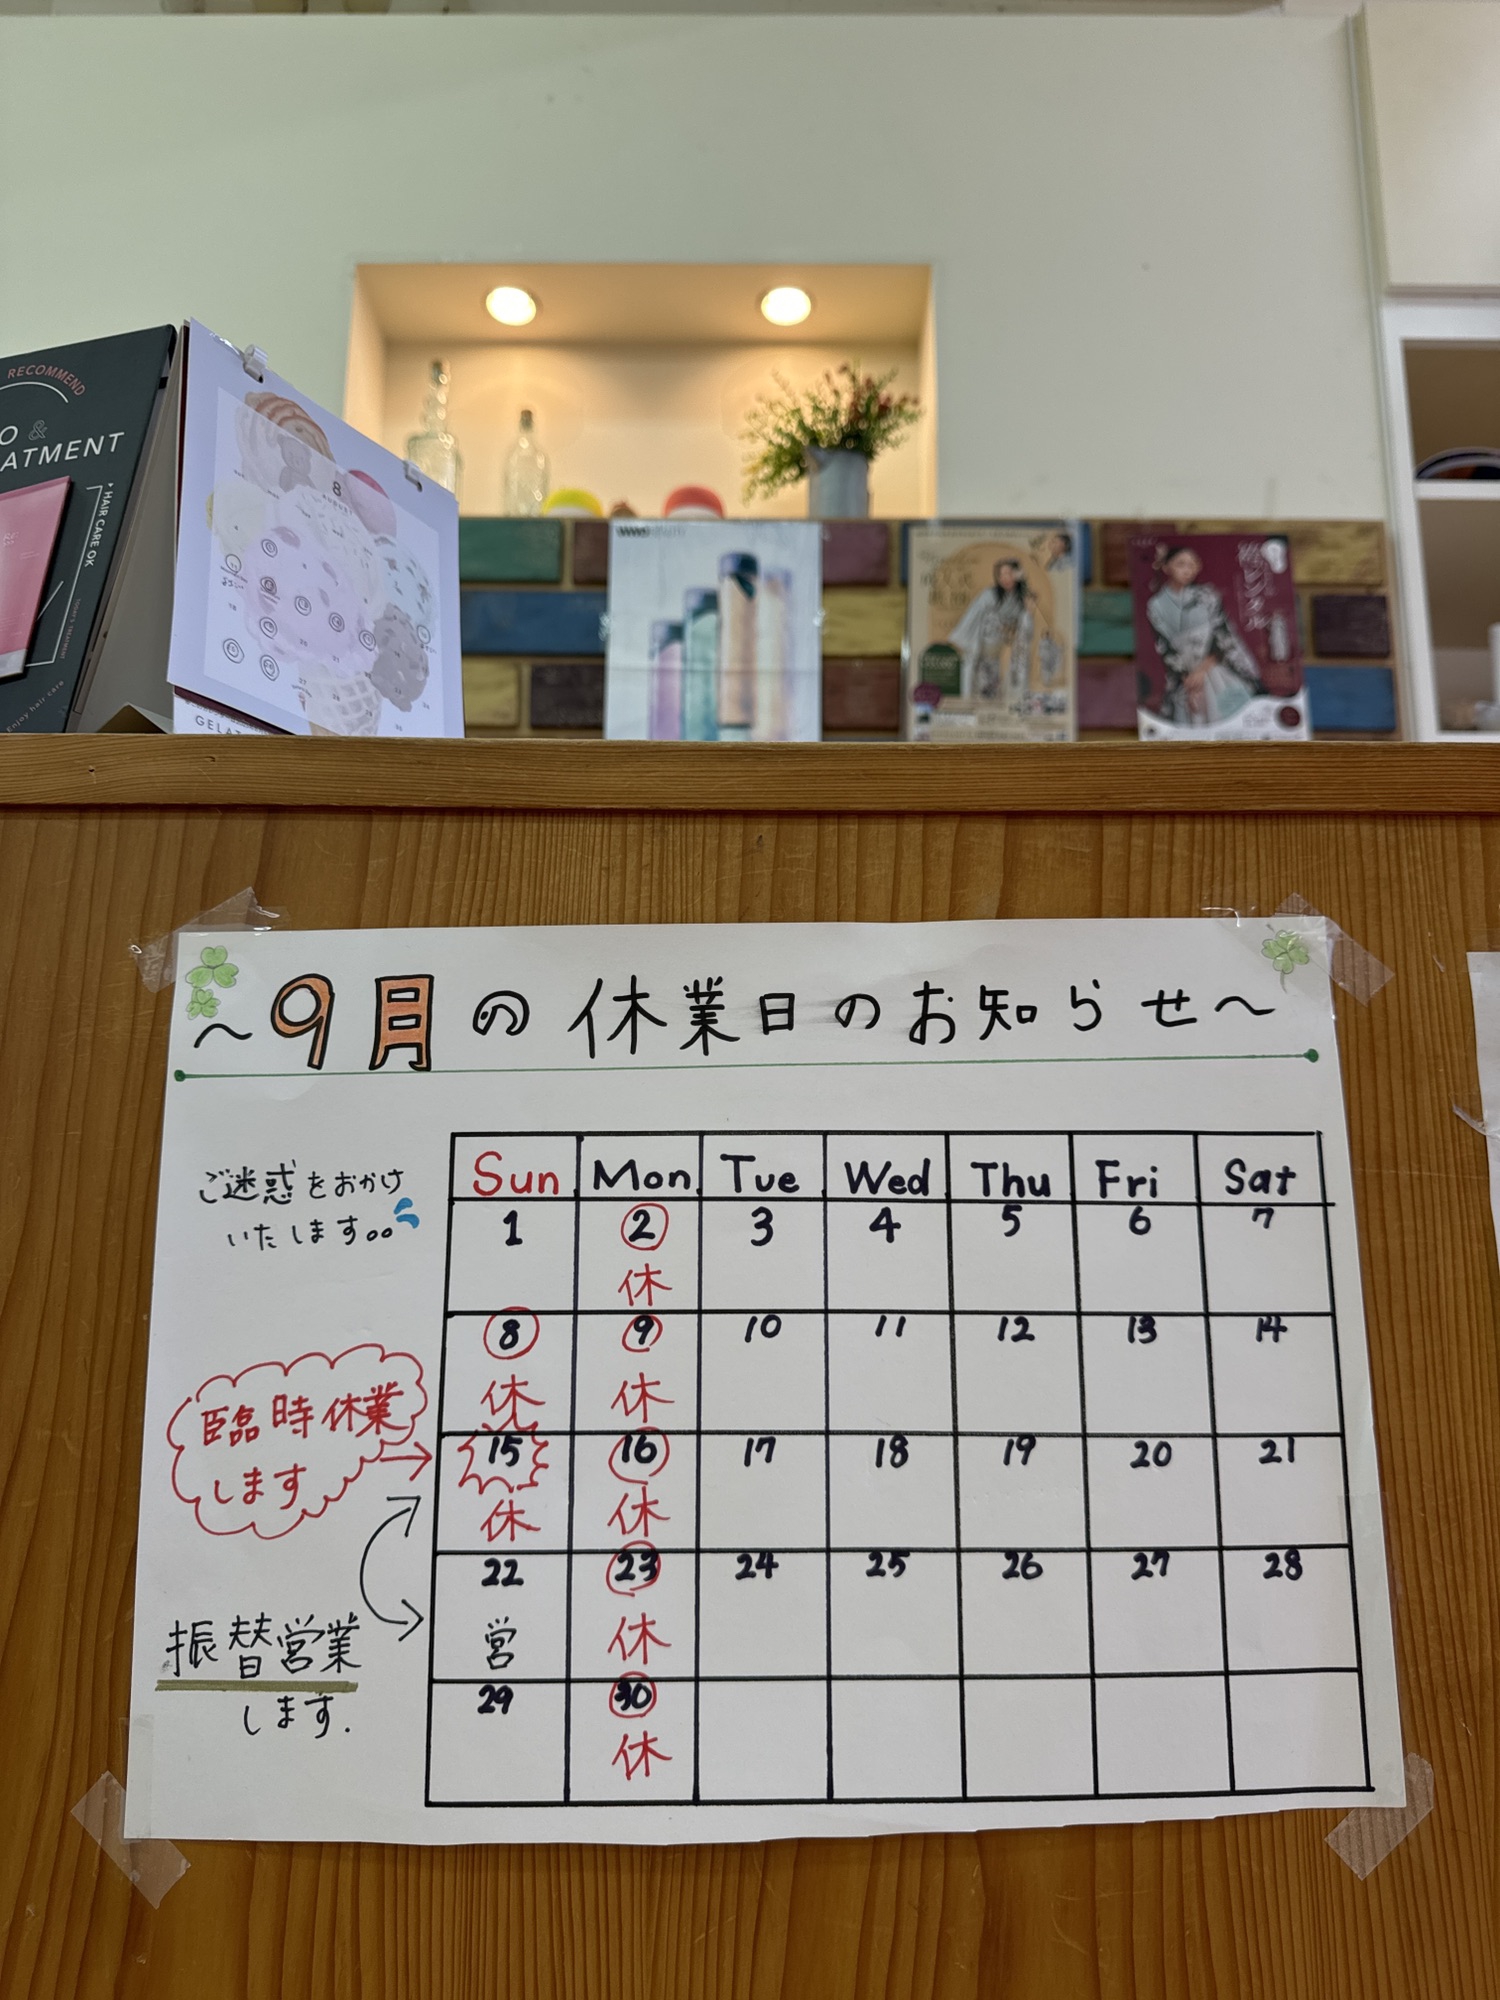 RECOMMEND
O &
ATMENT
HAIR CARE OK
TODAY'S TREATMENT
Enjoy hair care
8
AUGUST
GELAT
~9月の休業日のお知らせ~
ご迷惑をおかけ
いたします。。
臨時休業
します
振替営業
します.
Sun Mon Tue Wed Thu Fri Sat
1 2 3 4 5 6 7
休
8 9 10 11 12 13 14
休 休
15 16 17 18 19 20 21
休 休
22 23 24 25 26 27 28
営 休
29 30
休